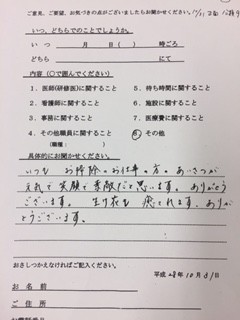 ご意見、ご要望、お気づきの点がございましたらお聞かせください。
いつ、どちらでのことでしょうか。
いつ 月 日( ) 時ごろ
どちら にて
内容(○で囲んでください)
1．医師(研修医)に関すること 5．待ち時間に関すること
2．看護師に関すること 6．施設に関すること
3．事務に関すること 7．医療費に関すること
4．その他職員に関すること 8．その他
(職種： )
具体的にお聞かせください。
いつも お掃除のお仕事の方。あいさつが
されて 笑顔で素敵だと思います。ありがとう
ございます。 生け花も 癒されます。ありが
とうございます。
おさしつかえなければご記入ください。
平成28年10月31日
お名前
ご住所